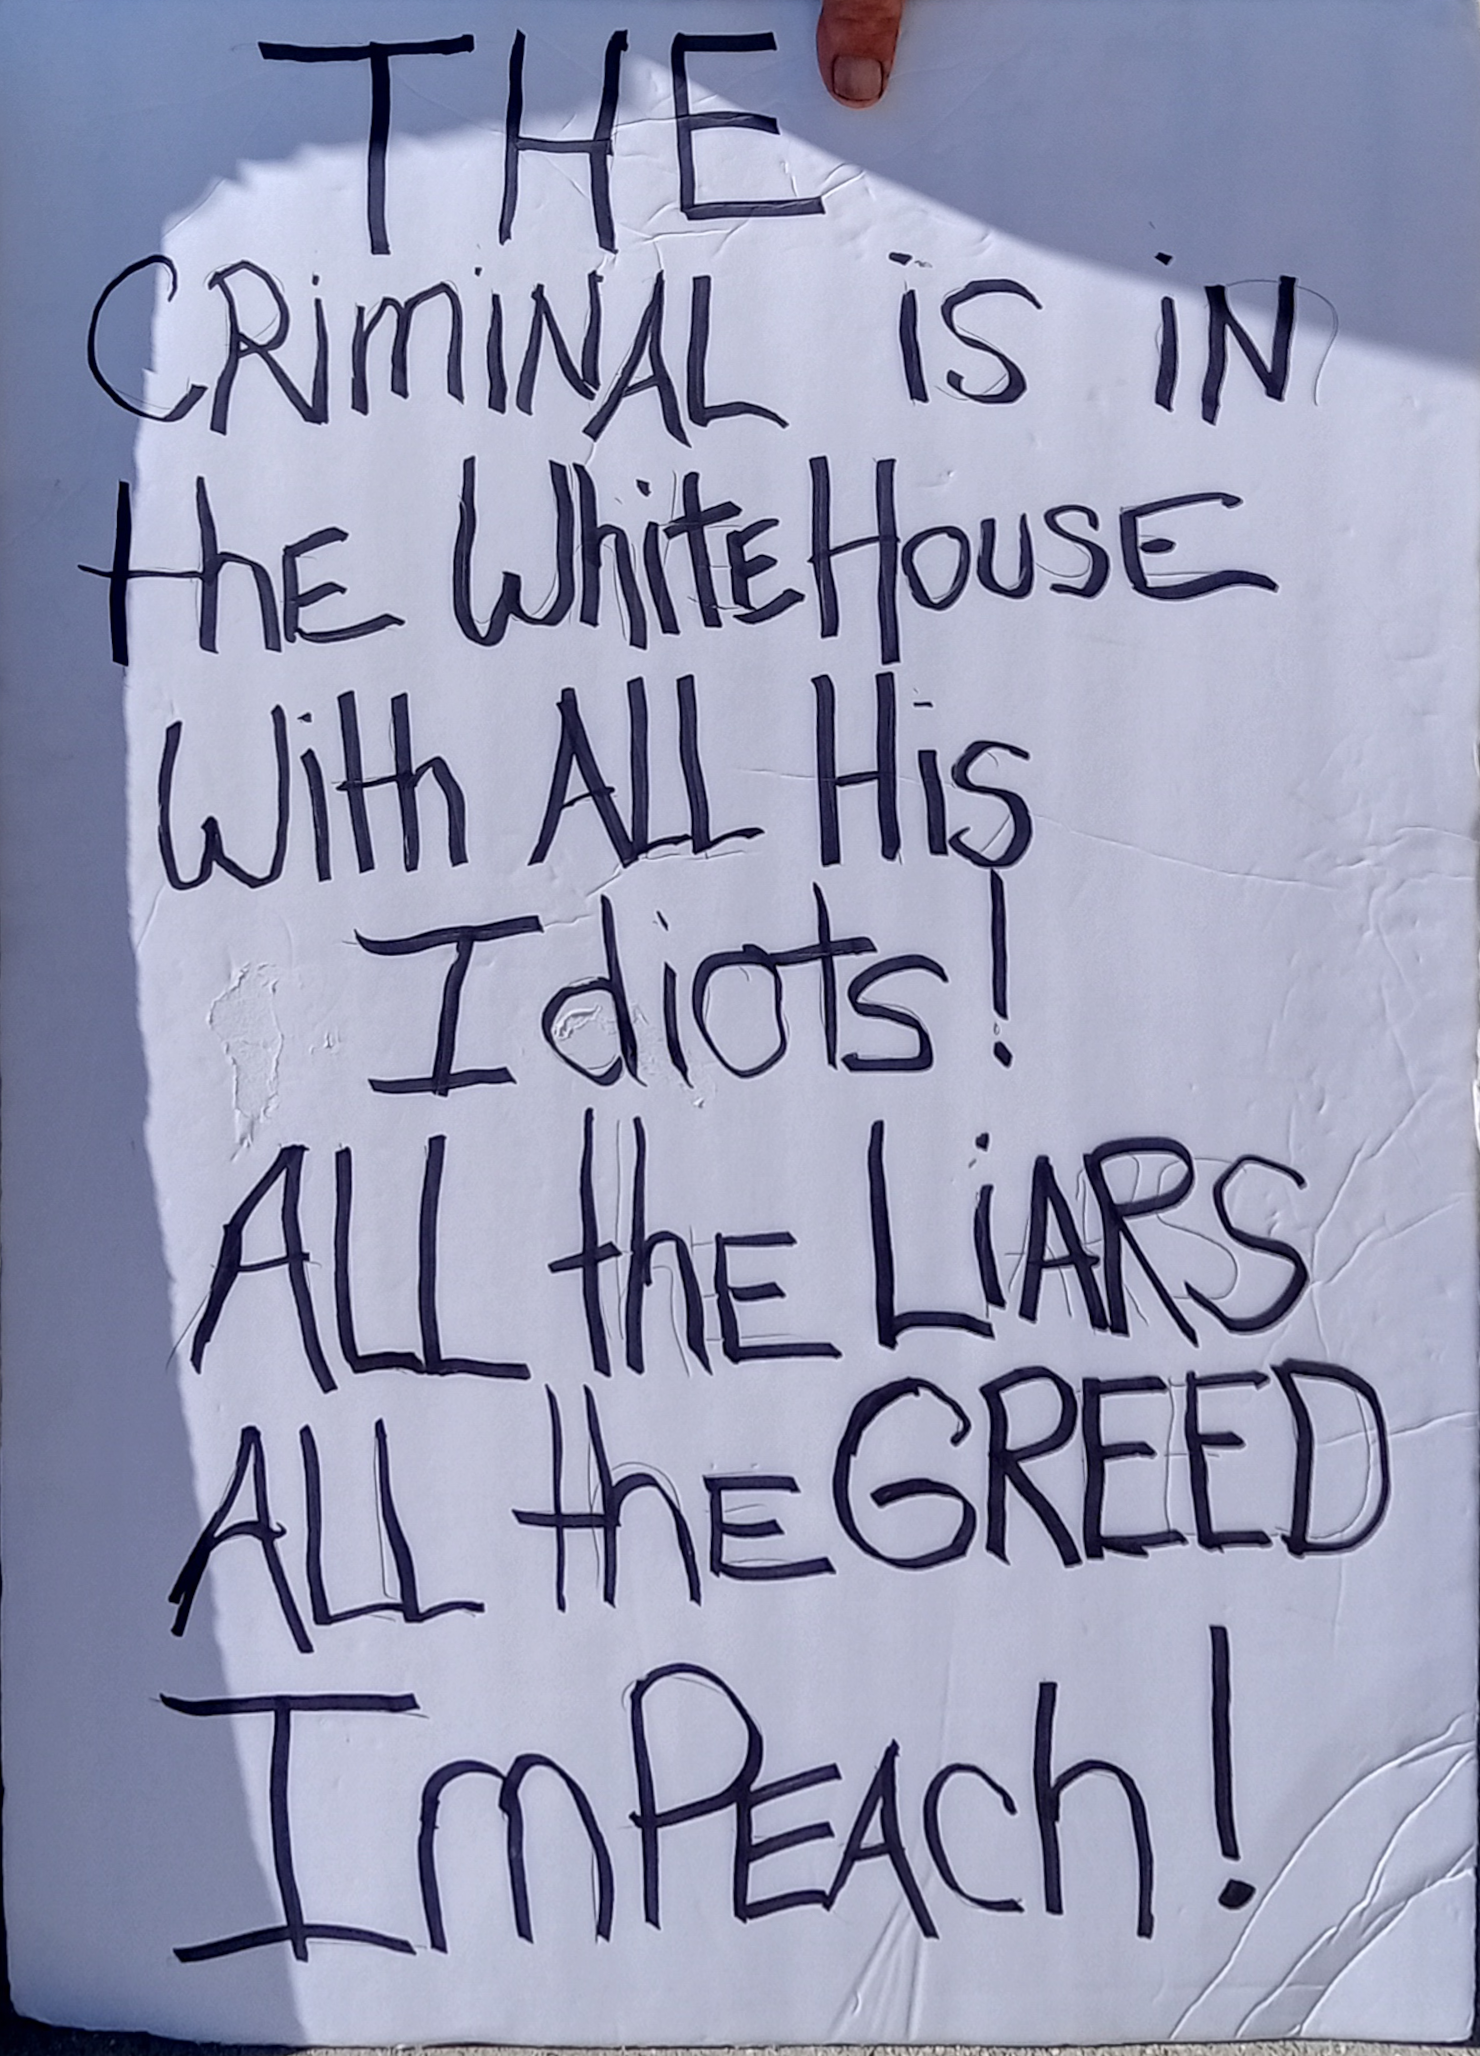 THE
CRiMiNAL iS iN
thE WhitEHOUSE
With ALL His
Idiots!
ALL thE LiARS
ALL thE GREED
ImPEACh!